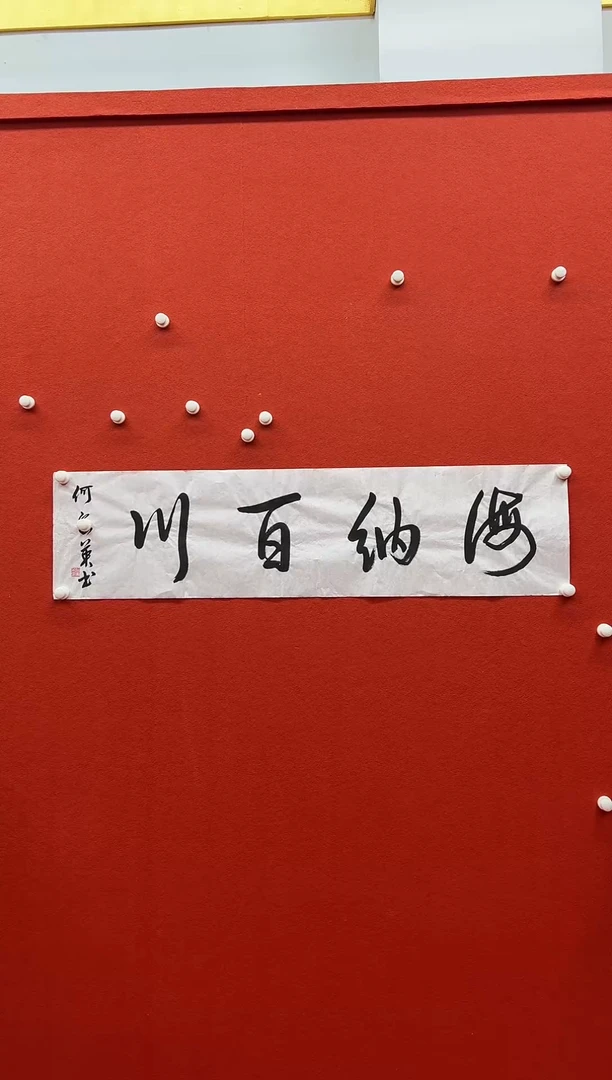 海纳百川
何 英书